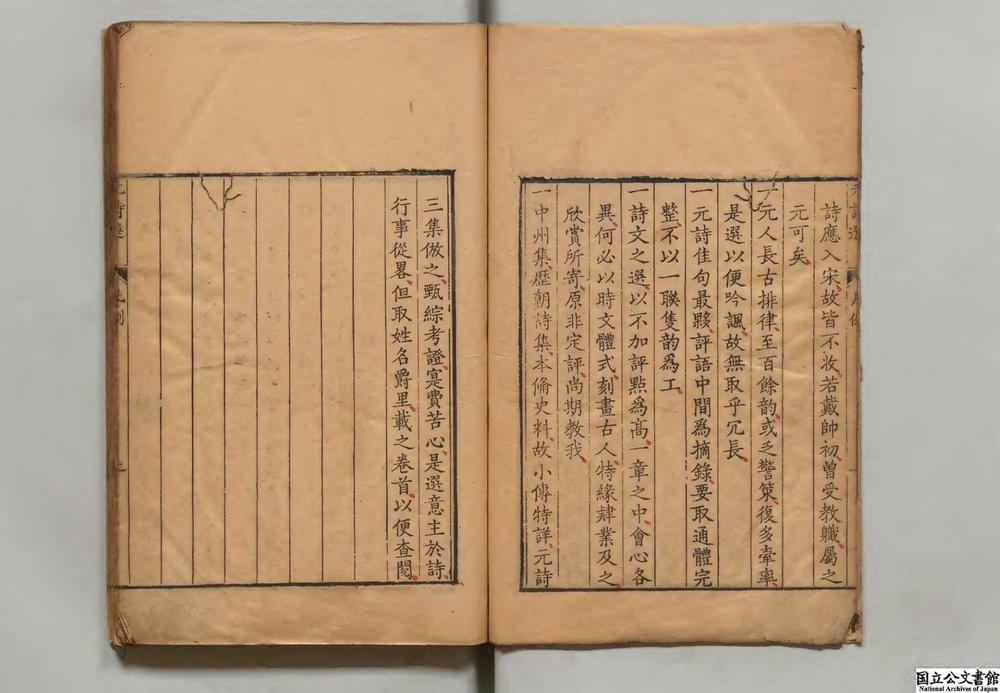 詩應入宋故皆不收若戴帥初曾受教職屬之
元可矣
一元人長古排律至百餘韵或乏警策復多牽率
是選以便吟諷故無取乎冗長
一元詩佳句最夥評語中間爲摘錄要取通體完
整不以一聯隻韵爲工
一詩文之選以不加評點爲高一章之中會心各
異何必以時文體式刻畫古人特緣肄業及之
欣賞所寄原非定評尚期教我
一中州集歷朝詩集本脩史料故小傳特詳元詩
三集倣之甄綜考證寔費苦心是選意主於詩
行事從畧但取姓名爵里載之卷首以便查閱
国立公文書館
National Archives of Japan